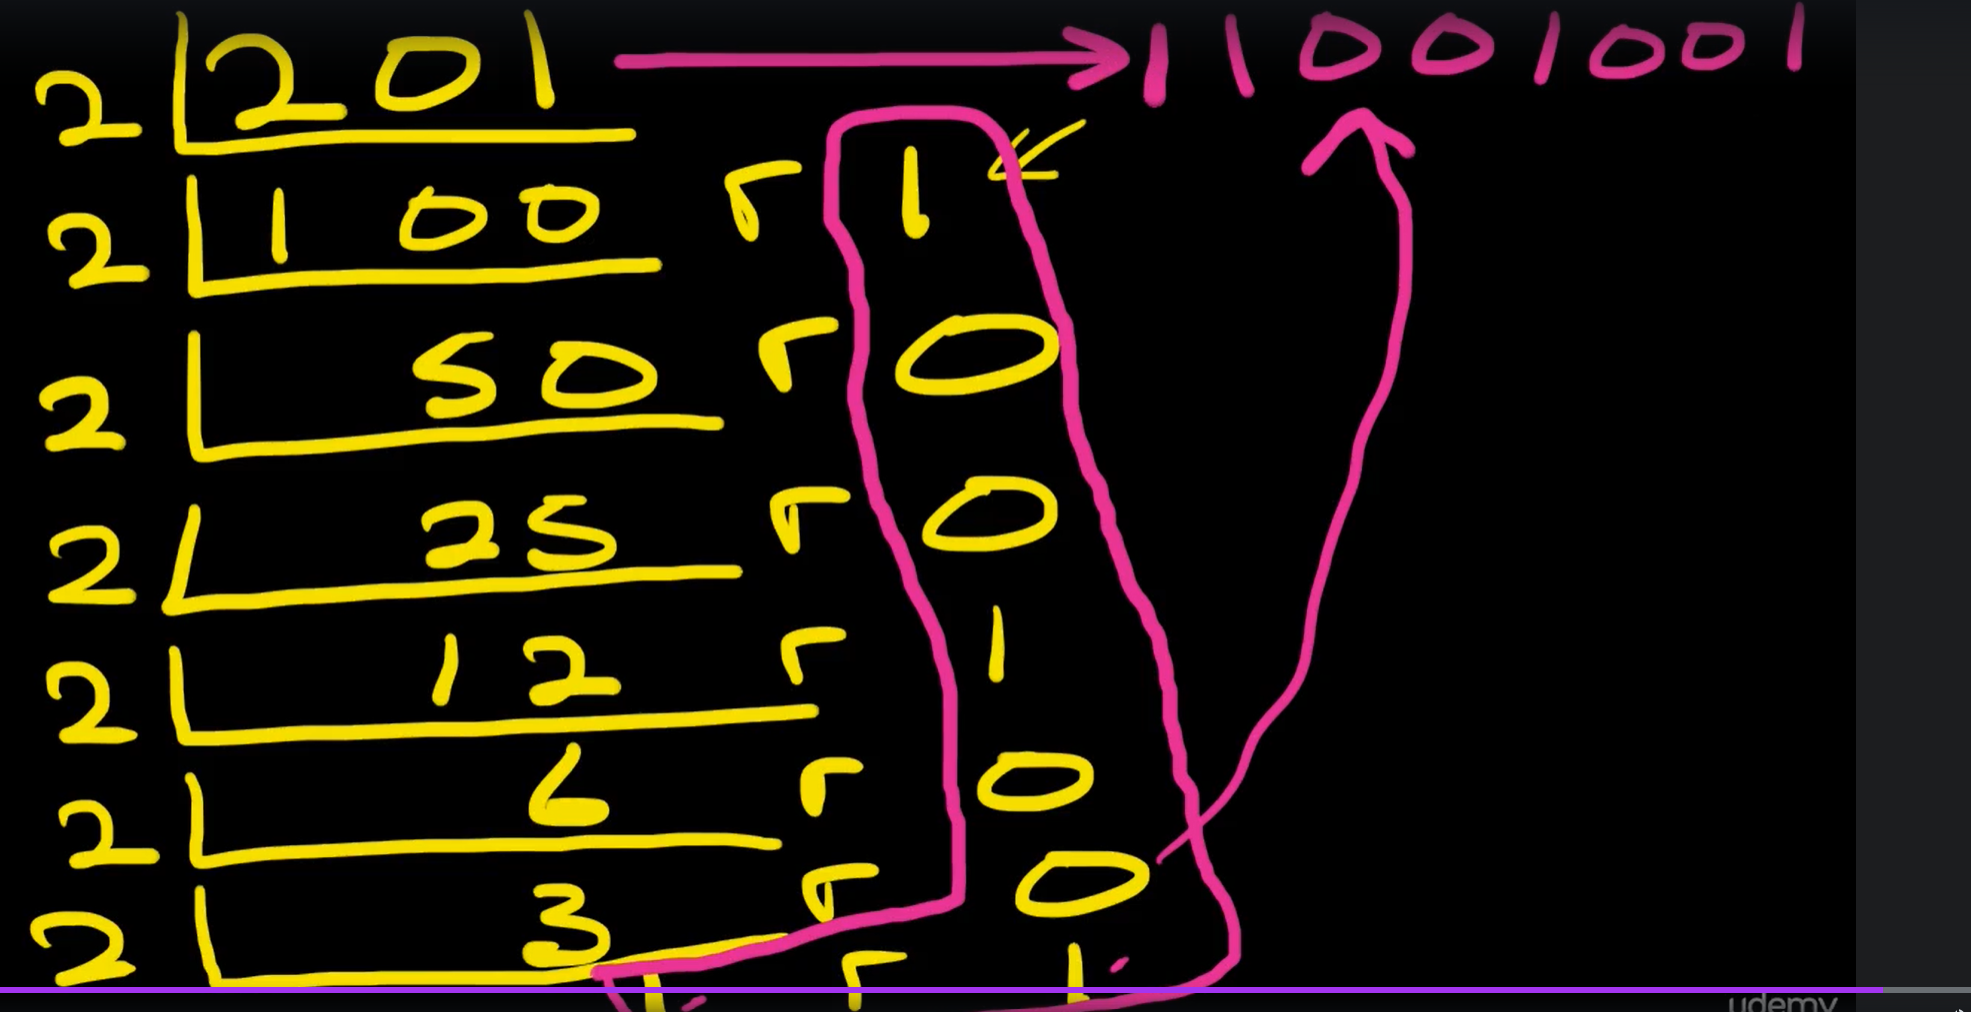 2 201 → 11001001
2 100 r 1
2 50 r 0
2 25 r 0
2 12 r 1
2 6 r 0
2 3 r 0
1 r 1
udemy